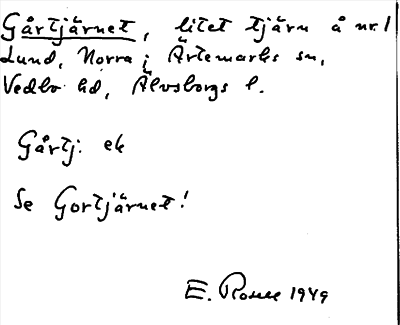 Gårtjärnet, litet tjärn å nr. 1
Lund, Norra i Ärtemarks sn,
Vedbo hd, Älvsborgs l.
Gårtj: ek
Se Gortjärnet!
E. Rosell 1949